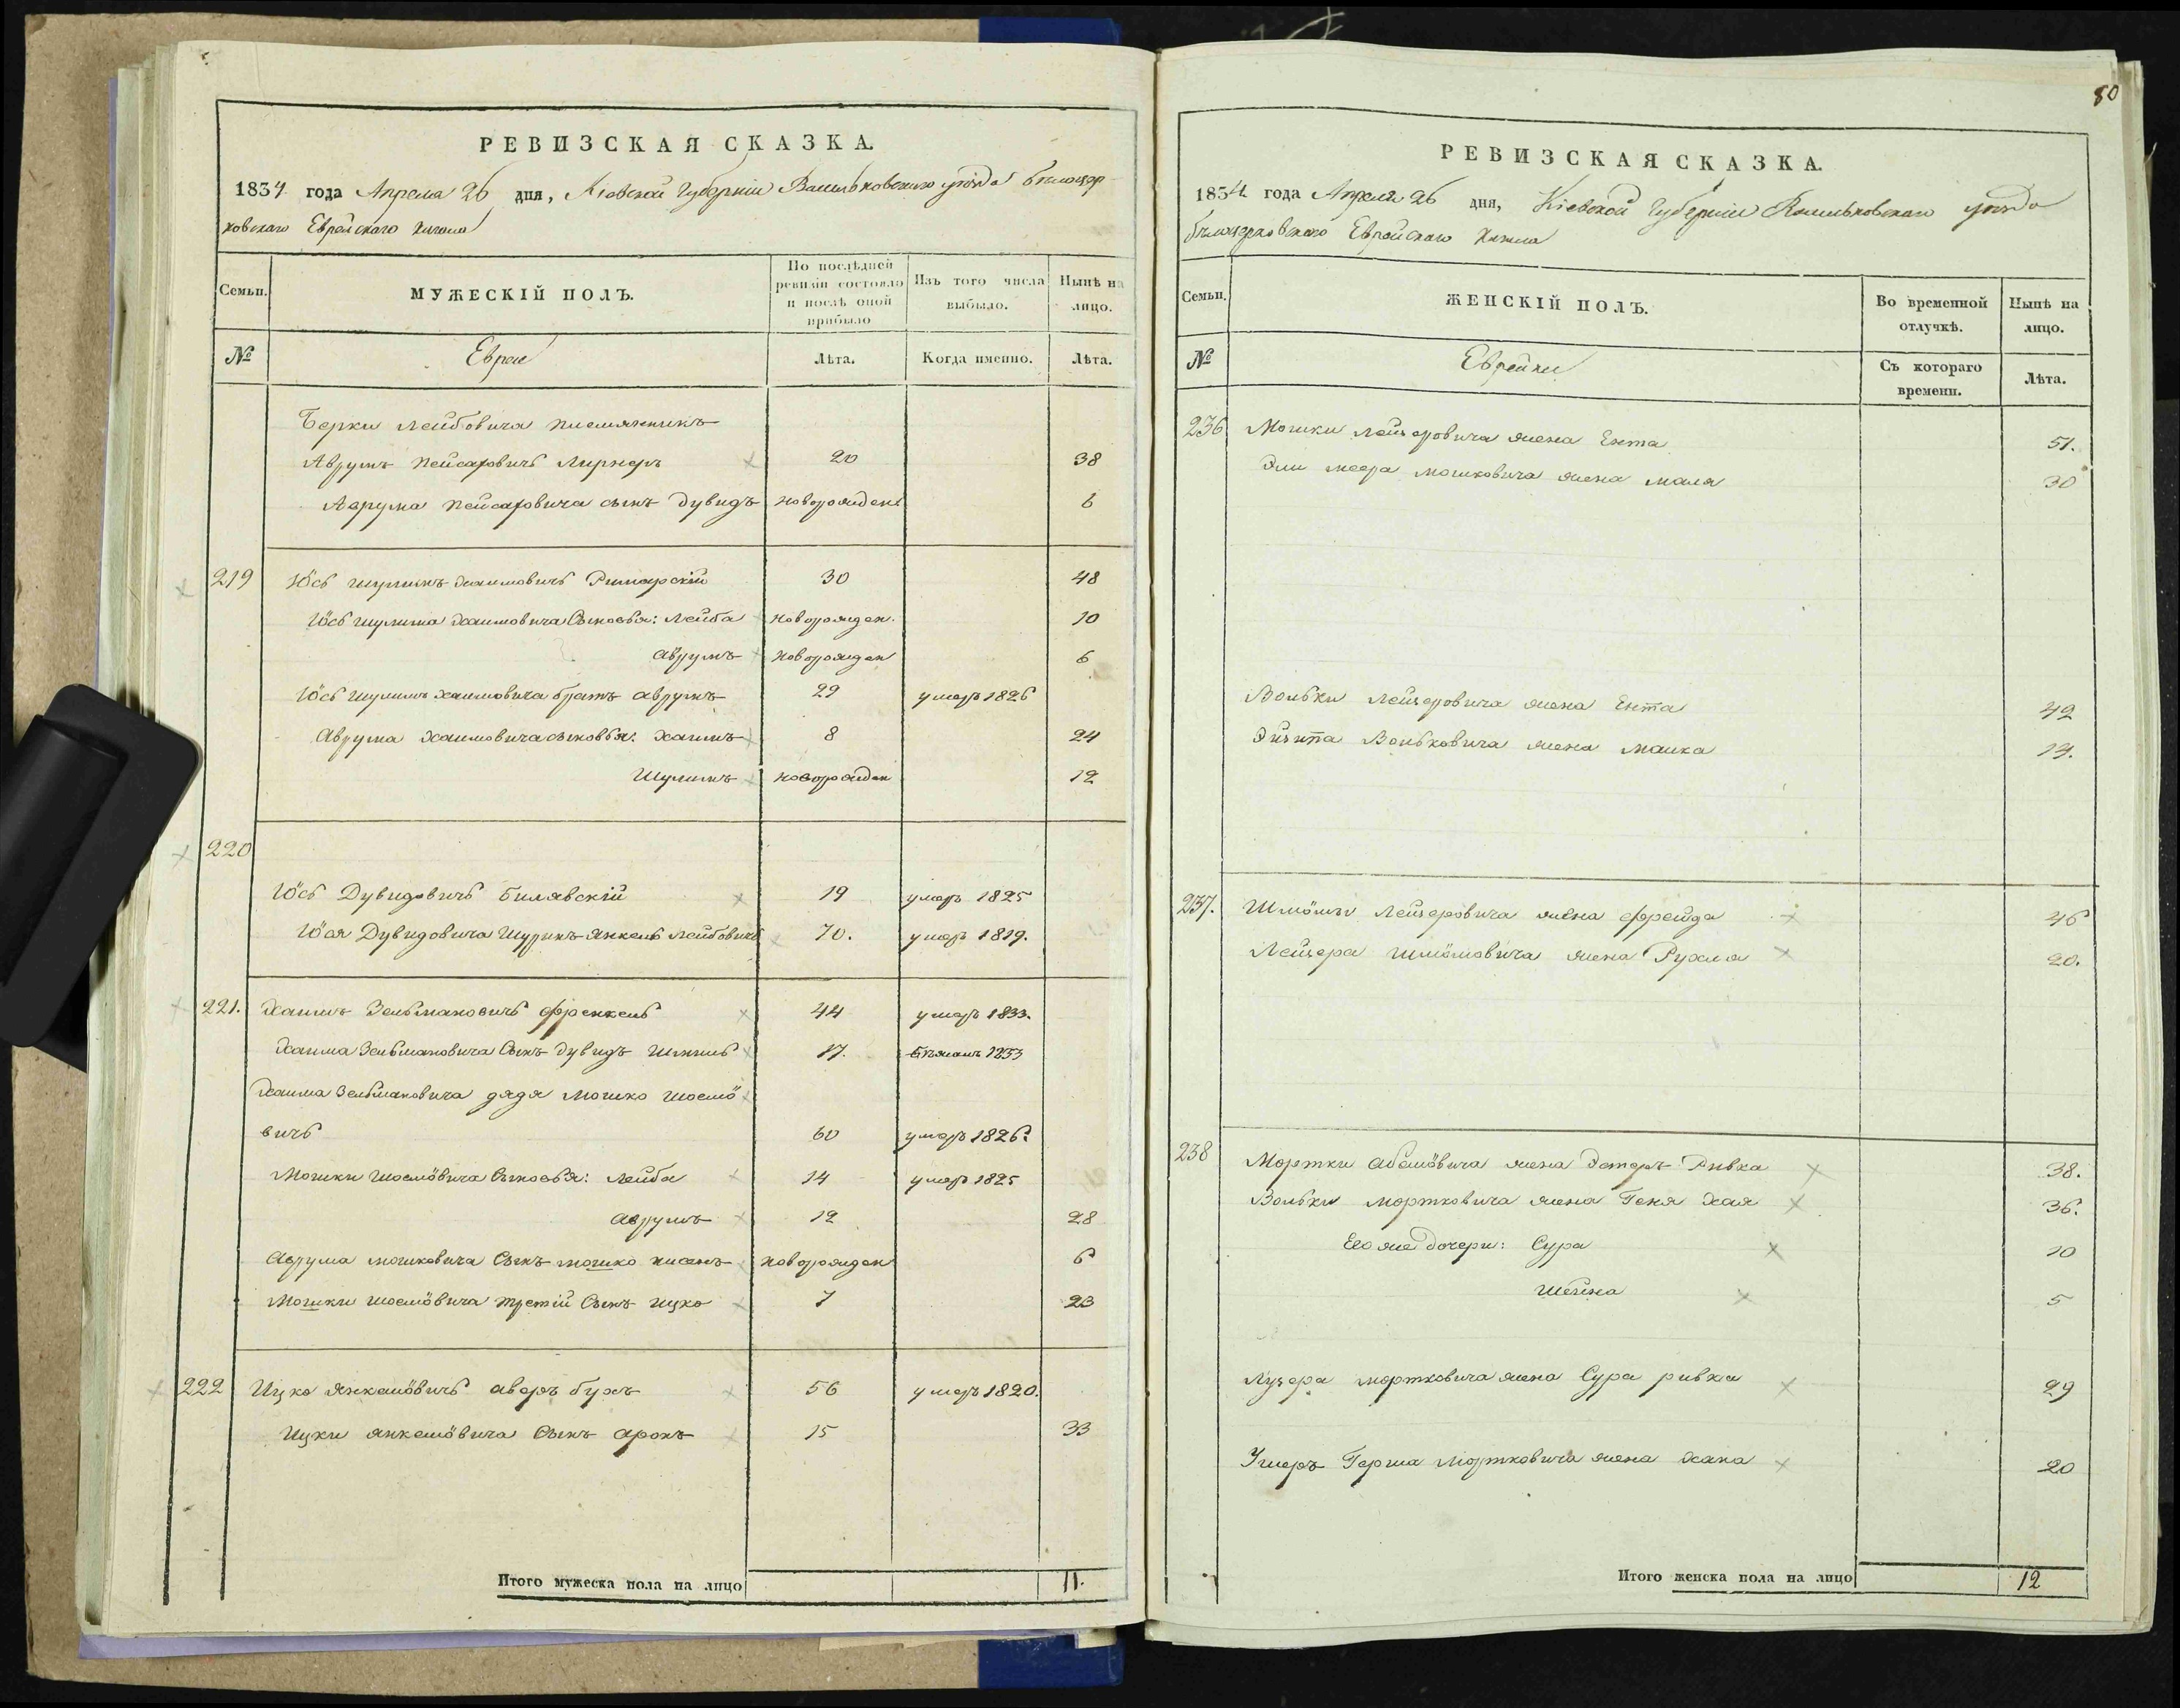 РЕВИЗСКАЯ СКАЗКА.
1834 года Апреля 26 дня, Кіевской Губерніи Васильковского уѣзда бѣлоцер
ковскаго Еврейскаго Кагала
Семьи.
МУЖЕСКІЙ ПОЛЪ.
По послѣдней ревизіи состояло и послѣ оной прибыло
Изъ того числа выбыло.
Нынѣ на лицо.
№
Евреи
Лѣта.
Когда именно.
Лѣта.
Берки Лейбовича племянникъ
Аврумъ Пейсаховичъ Лирнеръ 20 38
Аврума Пейсаховича сынъ Дувидъ новорожденъ 6
219 Іось шулимъ Хаимовичъ Римарскій 30 48
Іось шулима Хаимовича Сыновья: Лейба новорожден. 10
аврумъ новорожден 6
Іось шулимъ Хаимовича братъ аврумъ 29 умеръ 1826
Аврума Хаимовича сыновья: Хаимъ 8 24
Шулимъ новорожден 12
220
Іось Дувидовичъ Билявскій 19 умеръ 1825
Іося Дувидовича Шуринъ Янкель Лейбовичъ 70. умеръ 1819.
221. Хаимъ Зельмановичъ френкель 44 умеръ 1833.
Хаима Зельмановича Сынъ Дувидъ 17. Бѣжалъ 1833
Хаима Зельмановича дядя Мошко Иосіо
вичъ 60 умеръ 1826.
Мошки Сыновья: Лейба 14 умеръ 1825
аврумъ 12 28
Аврума мошковича Сынъ мошко нисонъ новорожден 6
Мошки третій Сынъ ицко 7 23
222 Ицко Янкеліовичъ авербухъ 56 умеръ 1820.
Ицки янкеліовича Сынъ аронъ 15 33
Итого мужеска пола на лицо 11.
80
РЕВИЗСКАЯ СКАЗКА.
1834 года Апреля 26 дня, Кіевской Губерніи Васильковскаго уѣзда
бѣлоцерковскаго Еврейскаго Кагала
Семьи.
ЖЕНСКІЙ ПОЛЪ.
Во временной отлучкѣ.
Нынѣ на лицо.
№
Еврейки
Съ котораго времени.
Лѣта.
236 Мошки Лейзеровича жена Ента 51.
Эли меера мошковича жена маля 30
Вольки Лейзеровича жена Ента 42
Вольковича жена малка 19.
237. Шліомы Лейзеровича жена фрейда 46
Лейзера Шліомовича жена Рухля 20.
238 Мортки жена Эстеръ Ривка 38.
Вольки мортковича жена Геня Хая 36.
Его же дочери: Сура 10
Шейна 5
Лузера мортковича жена Сура ривка 29
Герша Мортковича жена Хана 20
Итого женска пола на лицо 12